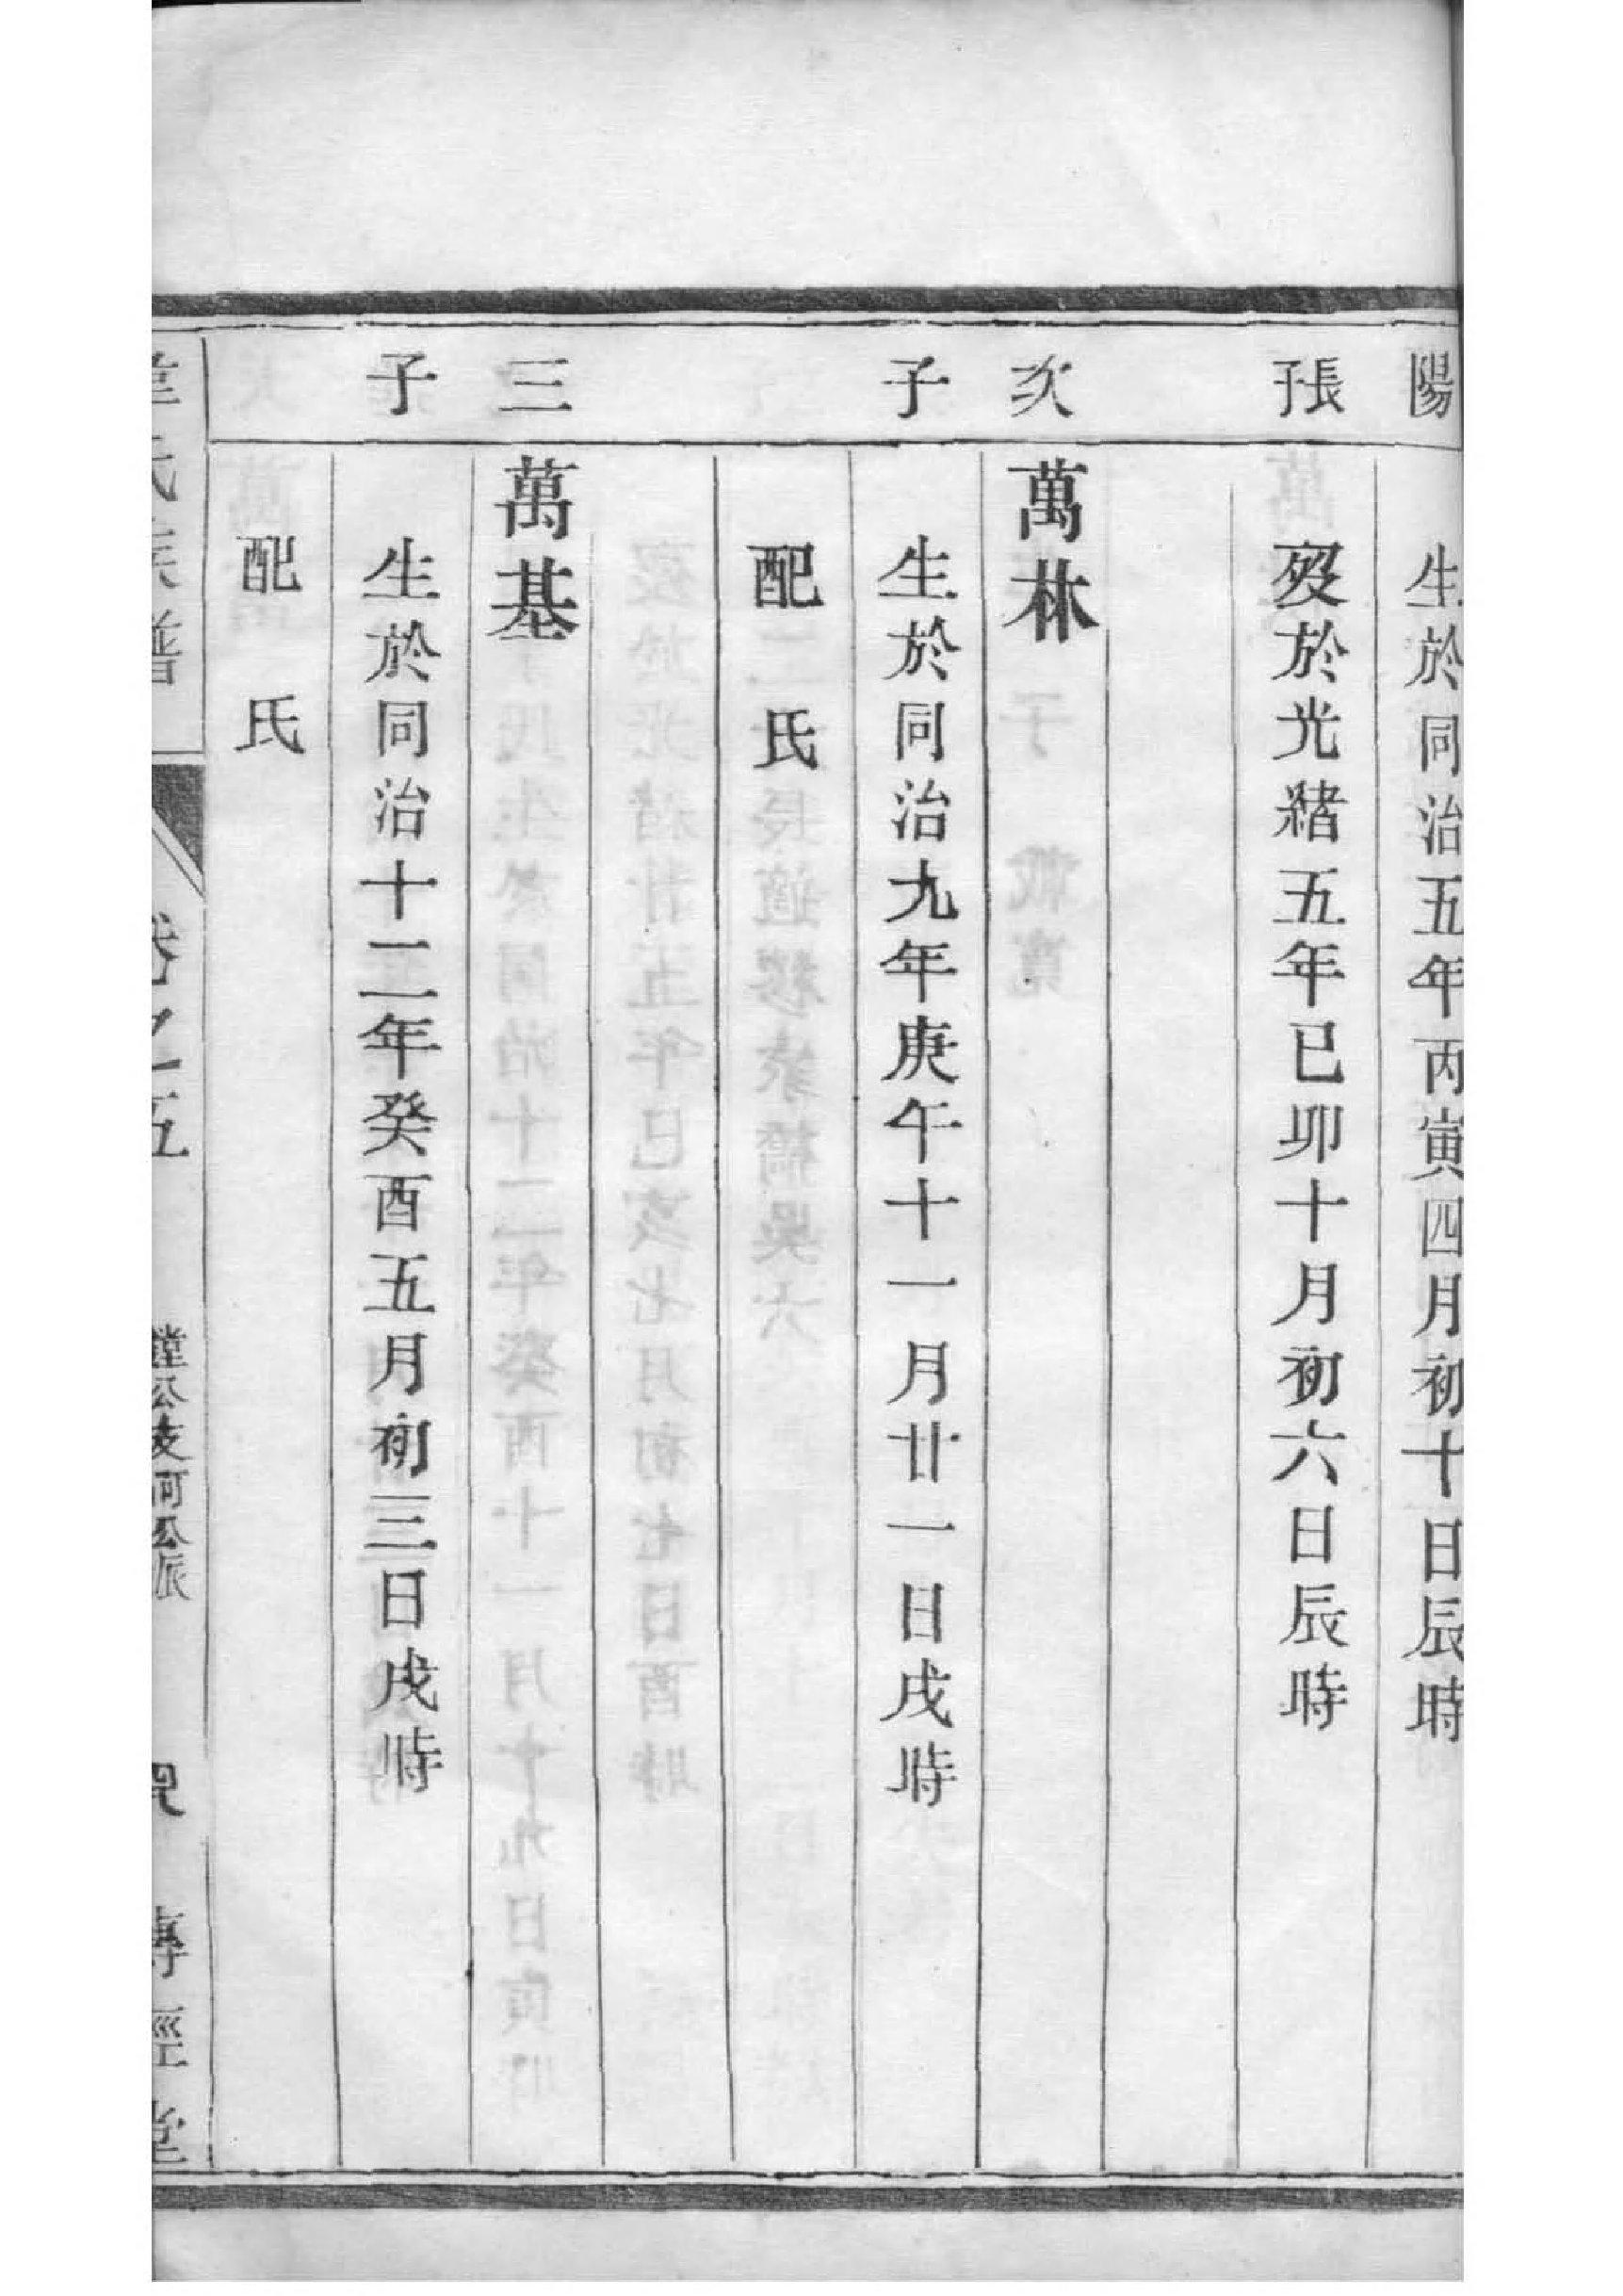 陽
生於同治五年丙寅四月初十日辰時
張子
歿於光緒五年已卯十月初六日辰時
次
萬林
子
生於同治九年庚午十一月廿一日戌時
配 氏
三
萬基
子
生於同治十二年癸酉五月初三日戌時
配 氏
氏族譜
卷之五
鏜公支河公派
傳經堂